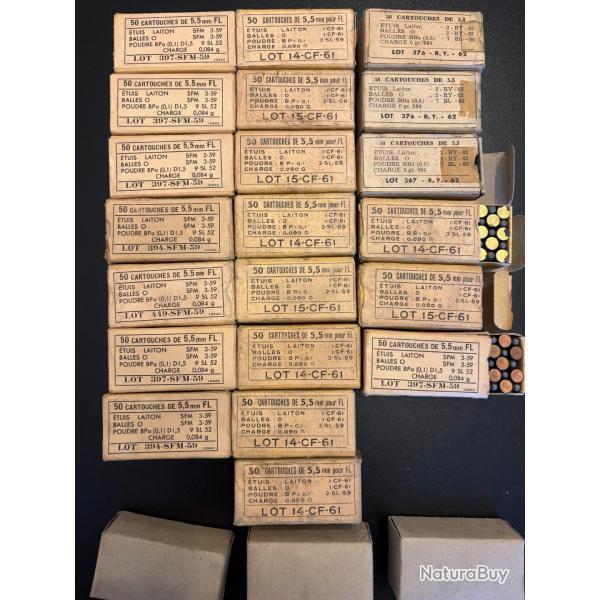 50 CARTOUCHES DE 5,5mm FL
ÉTUIS LAITON SFM 3-59
BALLES O SFM 3-59
POUDRE BPa (0,1) D1,5 9 SL 52
CHARGE 0,084 g
LOT 397-SFM-59
50 CARTOUCHES DE 5,5mm FL
ÉTUIS LAITON SFM 3-59
BALLES O SFM 3-59
POUDRE BPa (0,1) D1,5 9 SL 52
CHARGE 0,084 g
LOT 397-SFM-59
50 CARTOUCHES DE 5,5mm FL
ÉTUIS LAITON SFM 3-59
BALLES O SFM 3-59
POUDRE BPa (0,1) D1,5 9 SL 52
CHARGE 0,084 g
LOT 397-SFM-59
50 CARTOUCHES DE 5,5mm FL
ÉTUIS LAITON SFM 3-59
BALLES O SFM 3-59
POUDRE BPa (0,1) D1,5 9 SL 52
CHARGE 0,084 g
LOT 394-SFM-59
50 CARTOUCHES DE 5,5mm FL
ÉTUIS LAITON SFM 3-59
BALLES O SFM 3-59
POUDRE BPa (0,1) D1,5 9 SL 52
CHARGE 0,084 g
LOT 449-SFM-59
50 CARTOUCHES DE 5,5mm FL
ÉTUIS LAITON SFM 3-59
BALLES O SFM 3-59
POUDRE BPa (0,1) D1,5 9 SL 52
CHARGE 0,084 g
LOT 397-SFM-59
50 CARTOUCHES DE 5,5mm FL
ÉTUIS LAITON SFM 3-59
BALLES O SFM 3-59
POUDRE BPa (0,1) D1,5 9 SL 52
CHARGE 0,084 g
LOT 394-SFM-59
50 CARTOUCHES DE 5,5mm pour FL
ÉTUIS : LAITON 1-CF-61
BALLES : O 1-CF-61
POUDRE : BP 0,1 2-SL-59
CHARGE : 0,090 G
LOT 14-CF-61
50 CARTOUCHES DE 5,5mm pour FL
ÉTUIS : LAITON 1-CF-61
BALLES : O 1-CF-61
POUDRE : BP 0,1 2-SL-59
CHARGE : 0,090 G
LOT 15-CF-61
50 CARTOUCHES DE 5,5mm pour FL
ÉTUIS : LAITON 1-CF-61
BALLES : O 1-CF-61
POUDRE : BP 0,1 2-SL-59
CHARGE : 0,090 G
LOT 15-CF-61
50 CARTOUCHES DE 5,5mm pour FL
ÉTUIS : LAITON 1-CF-61
BALLES : O 1-CF-61
POUDRE : BP 0,1 2-SL-59
CHARGE : 0,090 G
LOT 14-CF-61
50 CARTOUCHES DE 5,5mm pour FL
ÉTUIS : LAITON 1-CF-61
BALLES : O 1-CF-61
POUDRE : BP 0,1 2-SL-59
CHARGE : 0,090 G
LOT 15-CF-61
50 CARTOUCHES DE 5,5mm pour FL
ÉTUIS : LAITON 1-CF-61
BALLES : O 1-CF-61
POUDRE : BP 0,1 2-SL-59
CHARGE : 0,090 G
LOT 14-CF-61
50 CARTOUCHES DE 5,5mm pour FL
ÉTUIS : LAITON 1-CF-61
BALLES : O 1-CF-61
POUDRE : BP 0,1 2-SL-59
CHARGE : 0,090 G
LOT 14-CF-61
50 CARTOUCHES DE 5,5mm pour FL
ÉTUIS : LAITON 1-CF-61
BALLES : O 1-CF-61
POUDRE : BP 0,1 2-SL-59
CHARGE : 0,090 G
LOT 14-CF-61
50 CARTOUCHES DE 5,5
ÉTUIS Laiton - 2-RY-62
BALLES O - 2-RY-62
POUDRE BBa (0,5) - 7 SL-60
CHARGE 0 gr. 084
LOT 376 - R.Y. - 62
50 CARTOUCHES DE 5,5
ÉTUIS Laiton - 2-RY-62
BALLES O - 2-RY-62
POUDRE BBa (0,5) - 7 SL-60
CHARGE 0 gr. 084
LOT 376 - R.Y. - 62
50 CARTOUCHES DE 5,5
ÉTUIS Laiton - 2-RY-62
BALLES O - 2-RY-62
POUDRE BBa (0,5) - 7 SL-60
CHARGE 0 gr. 084
LOT 367 - R.Y. - 62
50 CARTOUCHES DE 5,5mm pour FL
ÉTUIS : LAITON 1-CF-61
BALLES : O 1-CF-61
POUDRE : BP 0,1 2-SL-59
CHARGE : 0,090 G
LOT 14-CF-61
50 CARTOUCHES DE 5,5mm pour FL
ÉTUIS : LAITON 1-CF-61
BALLES : O 1-CF-61
POUDRE : BP 0,1 2-SL-59
CHARGE : 0,090 G
LOT 15-CF-61
50 CARTOUCHES DE 5,5mm FL
ÉTUIS LAITON SFM 3-59
BALLES O SFM 3-59
POUDRE BPa (0,1) D1,5 9 SL 52
CHARGE 0,084 g
LOT 397-SFM-59
NaturaBuy